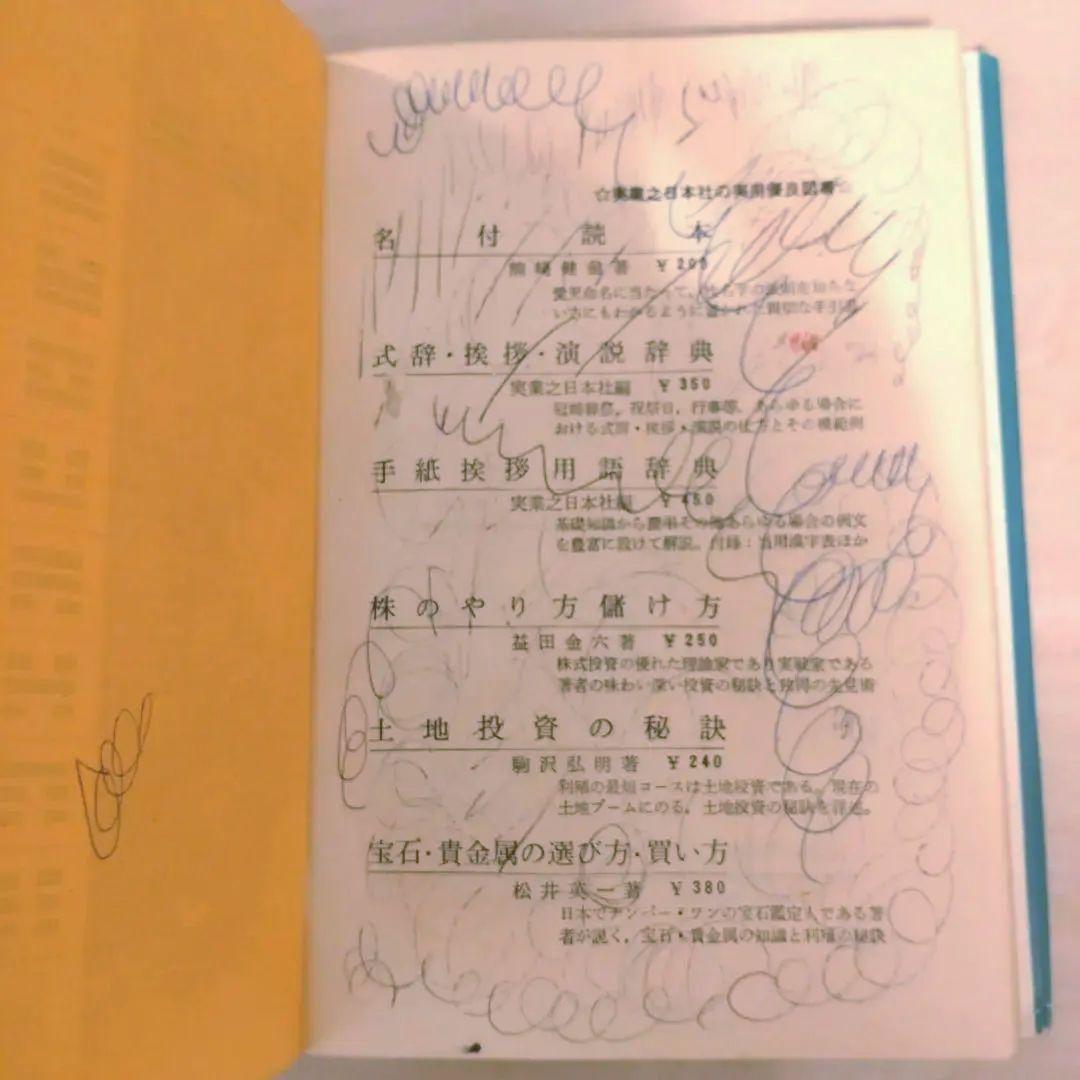 ☆実業之日本社の実用優良図書☆
名付読本
熊崎健翁著 ¥200
愛児命名に当たって、姓名学の法則を知らな
い方にもわかるように書かれた親切な手引書
式辞・挨拶・演説辞典
実業之日本社編 ¥350
冠婚葬祭，祝祭日，行事等、あらゆる場合に
おける式辞・挨拶・演説の仕方とその模範例
手紙挨拶用語辞典
実業之日本社編 ¥450
基礎知識から慶弔その他あらゆる場合の例文
を豊富に設けて解説。付録：当用漢字表ほか
株のやり方儲け方
益田金六著 ¥250
株式投資の優れた理論家であり実戦家である
著者の味わい深い投資の秘訣と独得の先見術
土地投資の秘訣
駒沢弘明著 ¥240
利殖の最短コースは土地投資である。現在の
土地ブームにのる，土地投資の秘訣を詳述。
宝石・貴金属の選び方・買い方
松井英一著 ¥380
日本でナンバー・ワンの宝石鑑定人である著
者が説く，宝石・貴金属の知識と利殖の秘訣